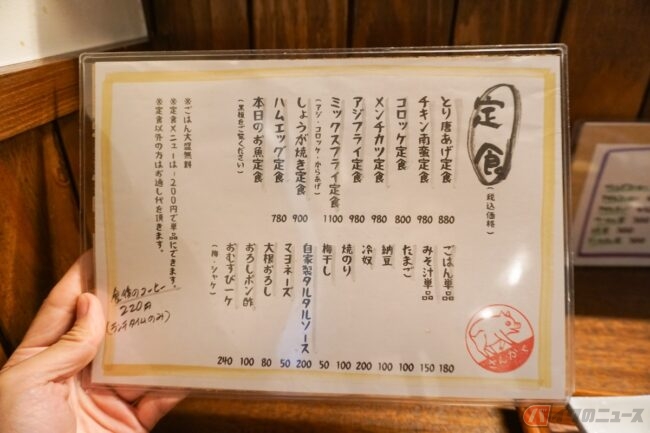 定食
(税込価格)
とり唐あげ定食 880
チキン南蛮定食 980
コロッケ定食 800
メンチカツ定食 980
アジフライ定食 980
ミックスフライ定食 1100
(アジ・コロッケ・からあげ)
しょうが焼き定食 900
ハムエッグ定食 780
本日のお魚定食
(黒板をご覧ください)
ごはん単品 180
みそ汁単品 150
たまご 100
納豆 100
冷奴 200
焼のり 100
梅干し 50
自家製タルタルソース 200
マヨネーズ 50
大根おろし 80
おろしポン酢 100
おむすび一ケ 240
(梅・シャケ)
※ごはん大盛無料
※定食メニューは-200円で単品にできます。
※定食以外の方はお通し代を頂きます。
食後のコーヒー
220円
(ランチタイムのみ)
さんかく
のニュース